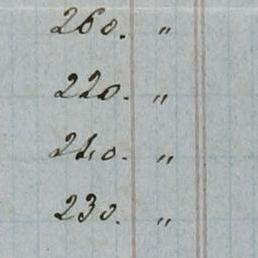 260. "
220. "
240. "
230. "